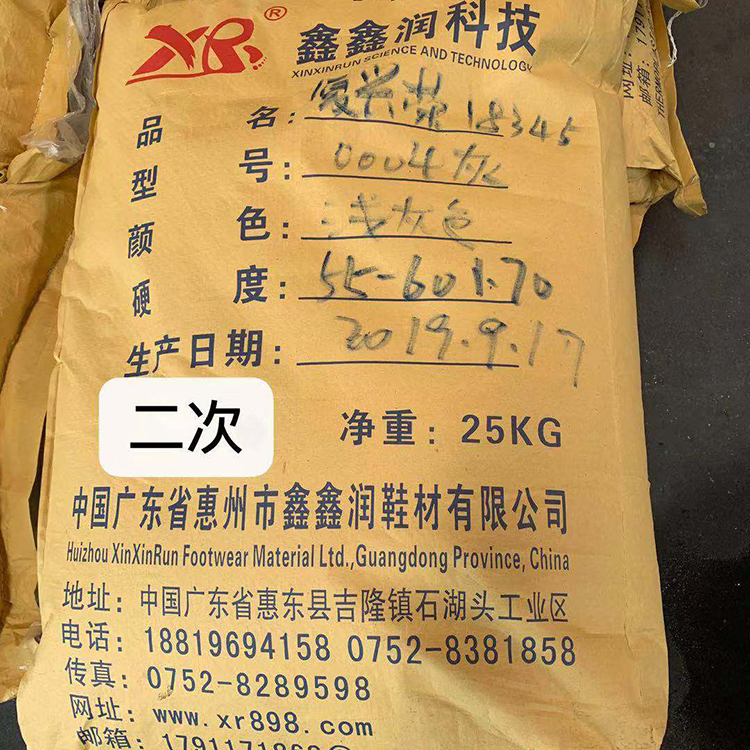 XR®
鑫鑫润科技
XINXINRUN SCIENCE AND TECHNOLOGY
品名:复兴 18345
型号:0004灰
颜色:浅灰色
硬度:55-60 1.70
生产日期:2019.9.17
二次
净重:25KG
中国广东省惠州市鑫鑫润鞋材有限公司
Huizhou XinXinRun Footwear Material Ltd.,Guangdong Province, China
地址:中国广东省惠东县吉隆镇石湖头工业区
电话:18819694158 0752-8381858
传真:0752-8289598
网址:www.xr898.com
邮箱:
网址:
邮箱: